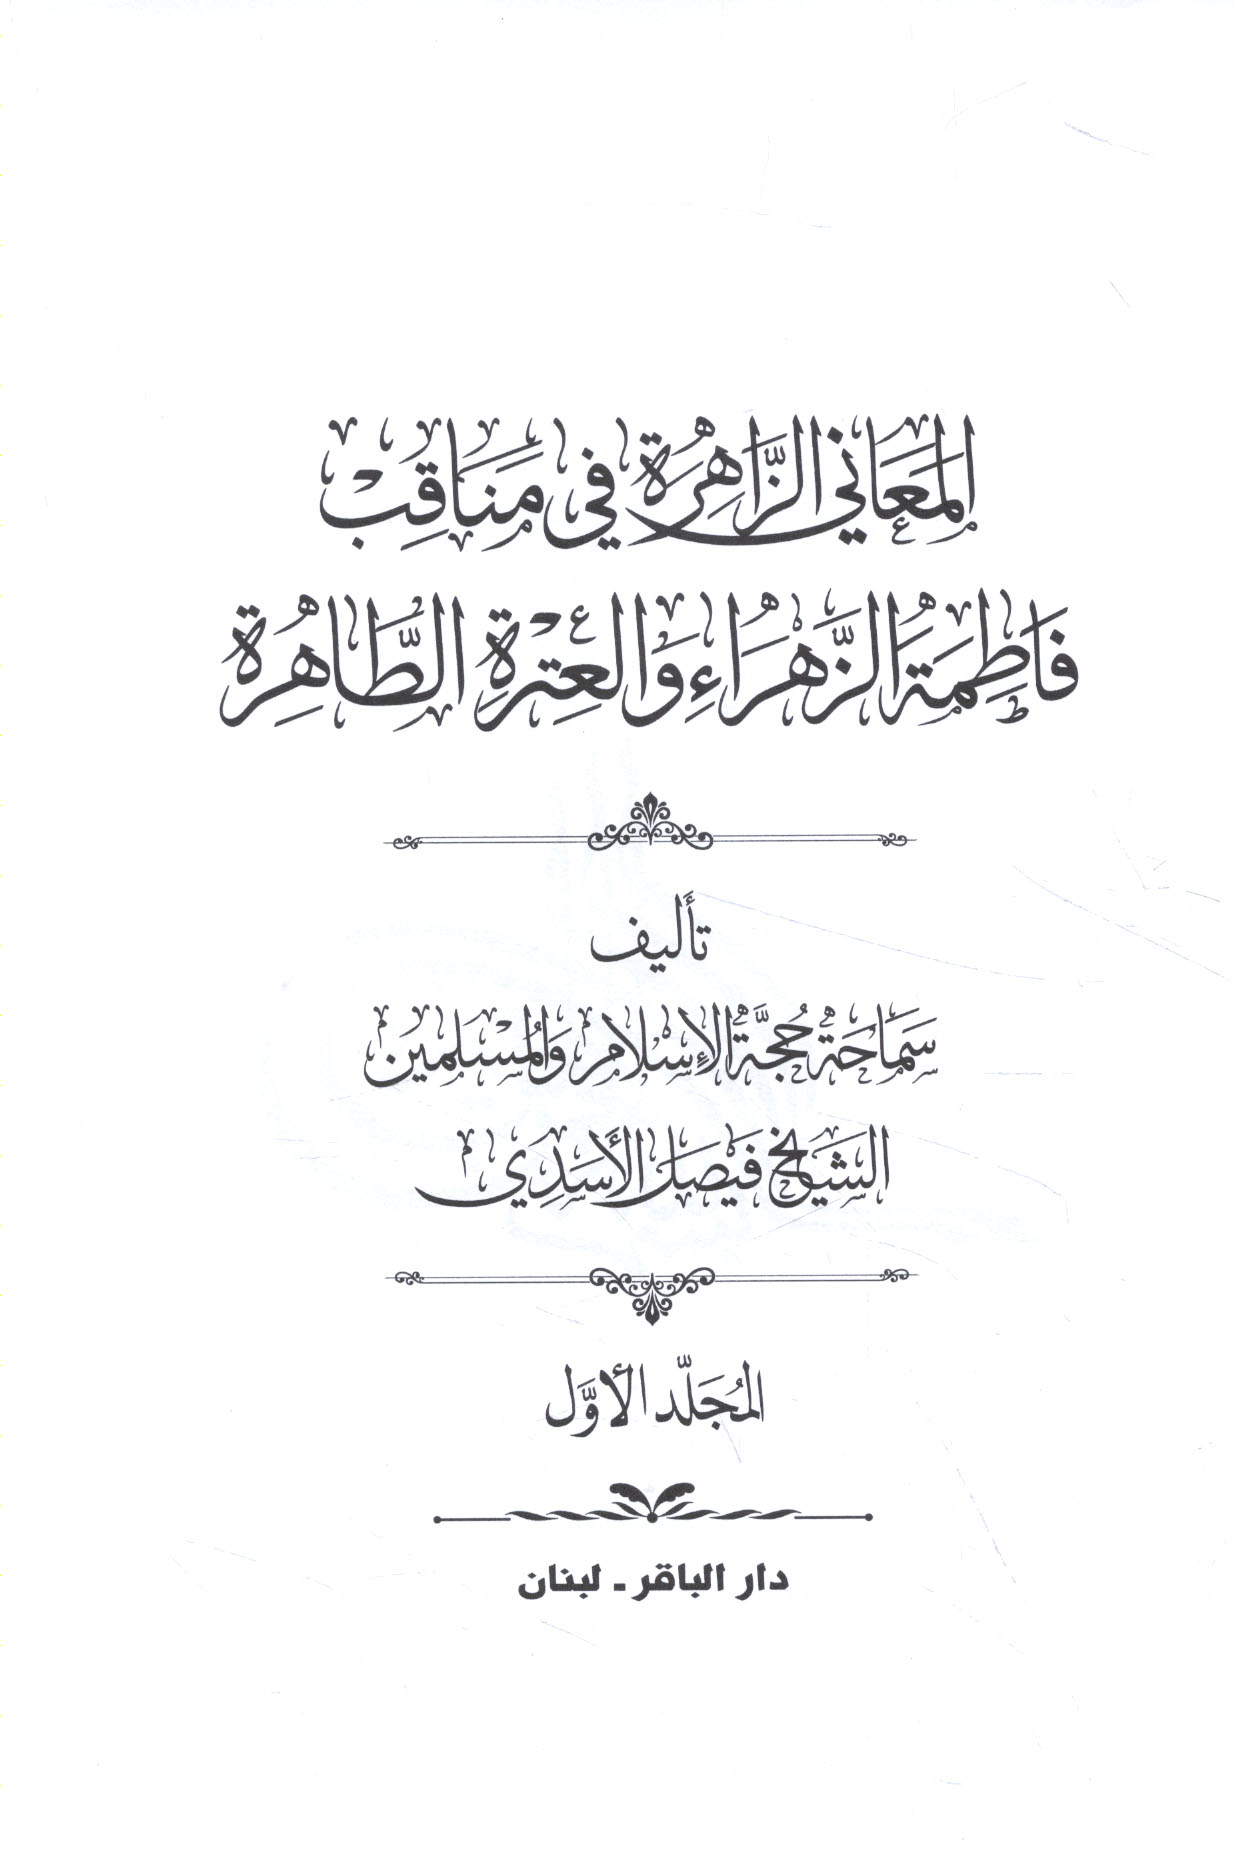 المَعَاني الزَّاهِرَة في مَنَاقِبْ
فَاطِمَة الزَّهْرَاءِ وَالعِتْرة الطَّاهِرة
تأليف
سَمَاحَة حُجَّة الإسْلام وَالمُسْلمين
الشَّيْخ فَيْصَل الأَسَدِي
المُجَلّد الأوَّل
دار الباقر ـ لبنان